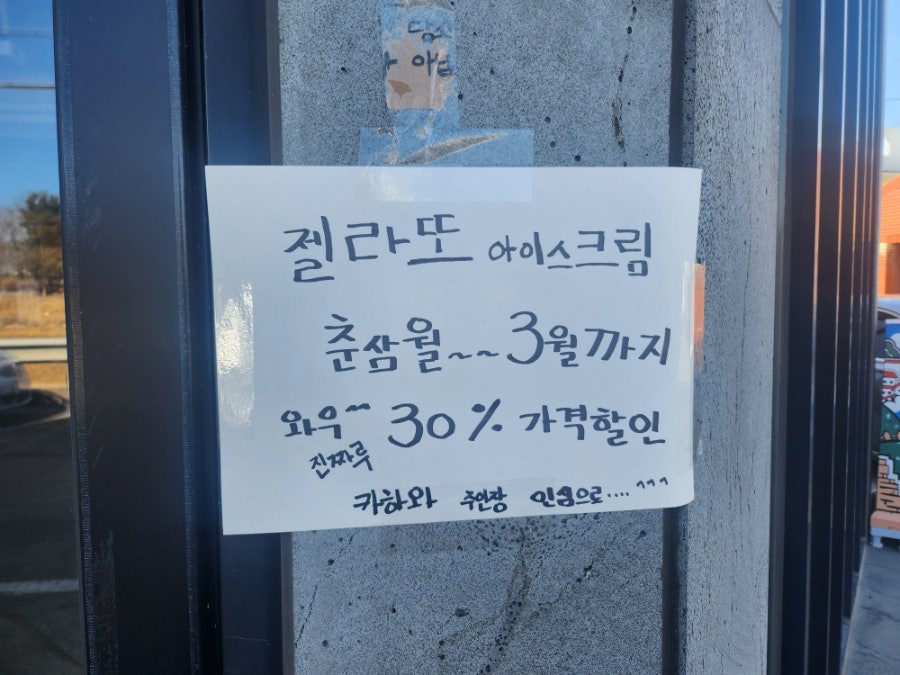 아님
젤라또 아이스크림
춘삼월~~3월까지
와우~~ 30% 가격할인
진짜루
카하와 주인장 인심으로....^^^